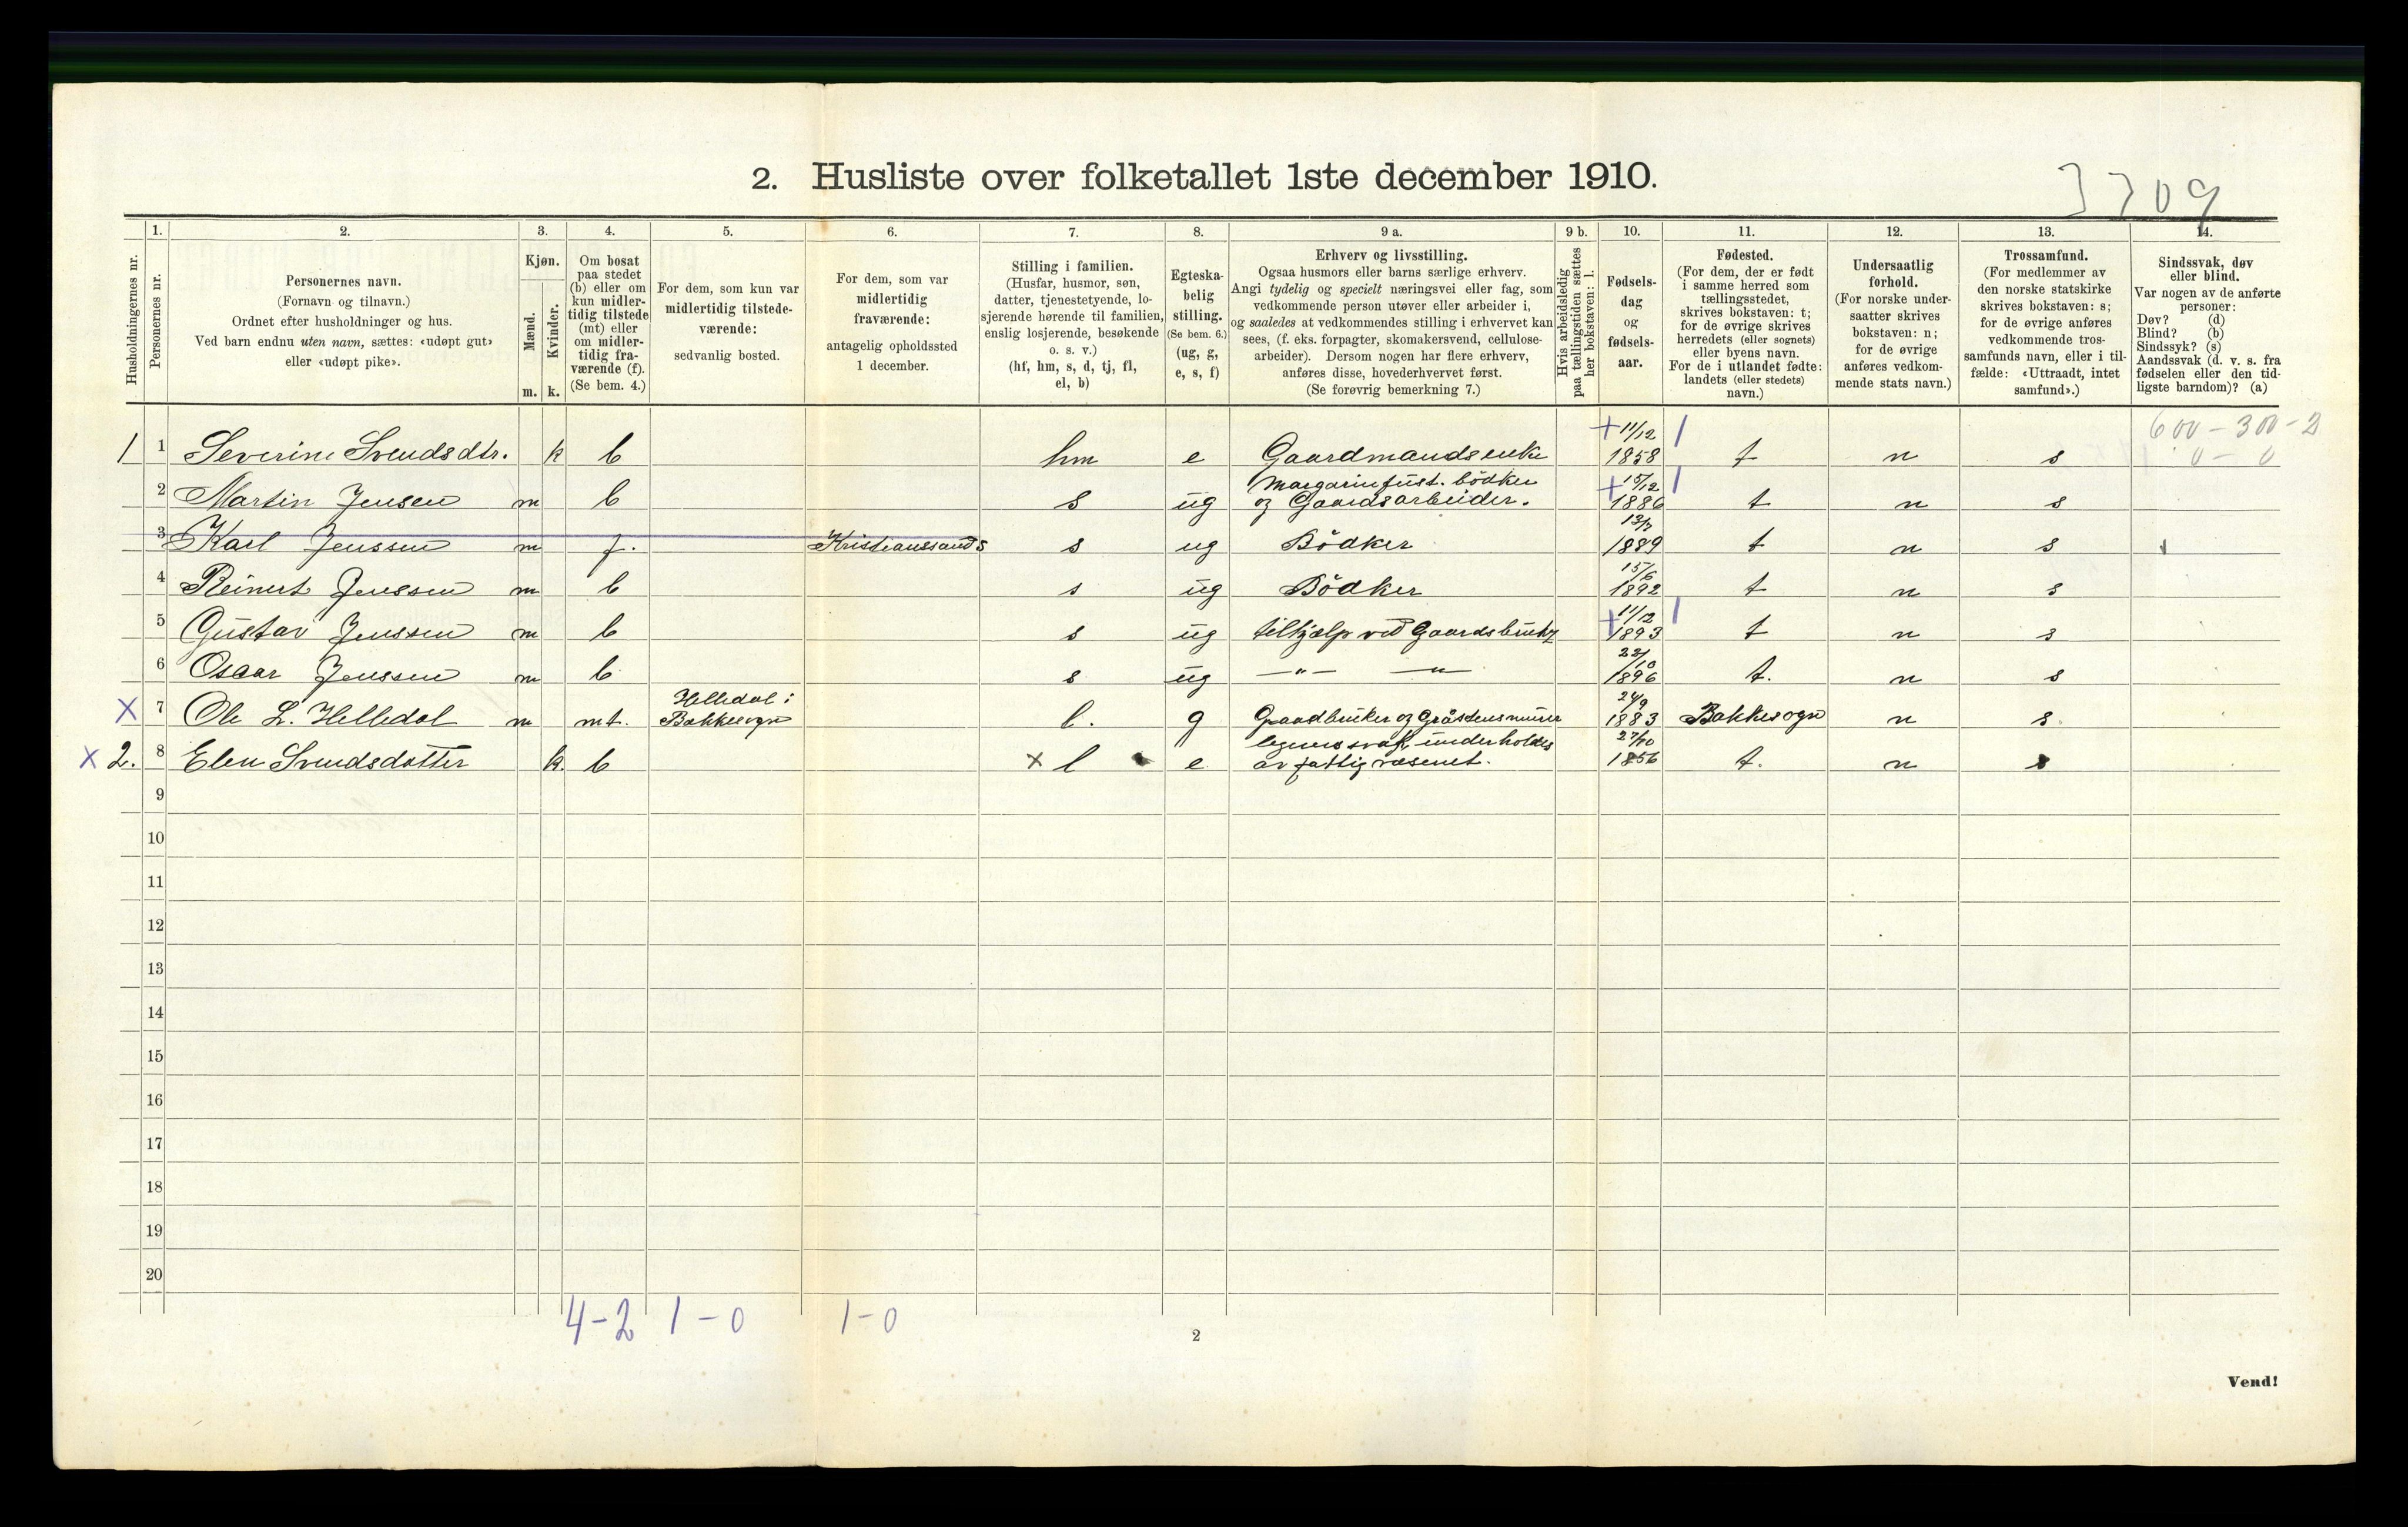 2. Husliste over folketallet 1ste december 1910.
3709
1. 2. 3. 4. 5. 6. 7. 8. 9 a. 9 b. 10. 11. 12. 13. 14.
Husholdningernes nr.
Personernes nr.
Personernes navn.
(Fornavn og tilnavn.)
Ordnet efter husholdninger og hus.
Ved barn endnu uten navn, sættes: «udøpt gut»
eller «udøpt pike».
Kjøn.
Mænd.
Kvinder.
m. k.
Om bosat
paa stedet
(b) eller om
kun midler-
tidig tilstede
(mt) eller
om midler-
tidig fra-
værende (f).
(Se bem. 4.)
For dem, som kun var
midlertidig tilstede-
værende:
sedvanlig bosted.
For dem, som var
midlertidig
fraværende:
antagelig opholdssted
1 december.
Stilling i familien.
(Husfar, husmor, søn,
datter, tjenestetyende, lo-
sjerende hørende til familien,
enslig losjerende, besøkende
o. s. v.)
(hf, hm, s, d, tj, fl,
el, b)
Egteska-
belig
stilling.
(Se bem. 6.)
(ug, g,
e, s, f)
Erhverv og livsstilling.
Ogsaa husmors eller barns særlige erhverv.
Angi tydelig og specielt næringsvei eller fag, som
vedkommende person utøver eller arbeider i,
og saaledes at vedkommendes stilling i erhvervet kan
sees, (f. eks. forpagter, skomakersvend, cellulose-
arbeider). Dersom nogen har flere erhverv,
anføres disse, hovederhvervet først.
(Se forøvrig bemerkning 7.)
Hvis arbeidsledig
paa tællingstiden sættes
her bokstaven: l.
Fødsels-
dag
og
fødsels-
aar.
Fødested.
(For dem, der er født
i samme herred som
tællingsstedet,
skrives bokstaven: t;
for de øvrige skrives
herredets (eller sognets)
eller byens navn.
For de i utlandet fødte:
landets (eller stedets)
navn.)
Undersaatlig
forhold.
(For norske under-
saatter skrives
bokstaven: n;
for de øvrige
anføres vedkom-
mende stats navn.)
Trossamfund.
(For medlemmer av
den norske statskirke
skrives bokstaven: s;
for de øvrige anføres
vedkommende tros-
samfunds navn, eller i til-
fælde: «Uttraadt, intet
samfund».)
Sindssvak, døv
eller blind.
Var nogen av de anførte
personer:
Døv? (d)
Blind? (b)
Sindssyk? (s)
Aandssvak (d. v. s. fra
fødselen eller den tid-
ligste barndom)? (a)
600 – 300 – 2
0 – 0
1 1 Severine Svendsdtr. k b hm e Gaardmandsenke + 11/12 1858 t n s
2 Martin Jensen m b s ug Margarinfust. bödker og Gaardsarbeider. + 15/12 1886 t n s
3 Karl Jenssen m f. Kristianssands s ug Bödker 1889 t n s
4 Reinert Jenssen m b s ug Bödker 15/6 1892 t n s
5 Gustav Jenssen m b s ug tilhjælp ved Gaardsbruk + 11/12 1893 t n s
6 Oscar Jenssen m b s ug —"— —"— 22/10 1896 t. n s
X 7 Ole L. Helledal m mt. Helledal i Bakkesogn l. g Gaardbruker og Gråstensmurer 24/9 1883 Bakkesogn n s.
X 2. 8 Elen Svendsdotter k. b x l e legems svak, underholdes av fattigvæsenet. 27/10 1856 t. n s
9
10
11
12
13
14
15
16
17
18
19
20
4–2 1–0 1–0
2
Vend!